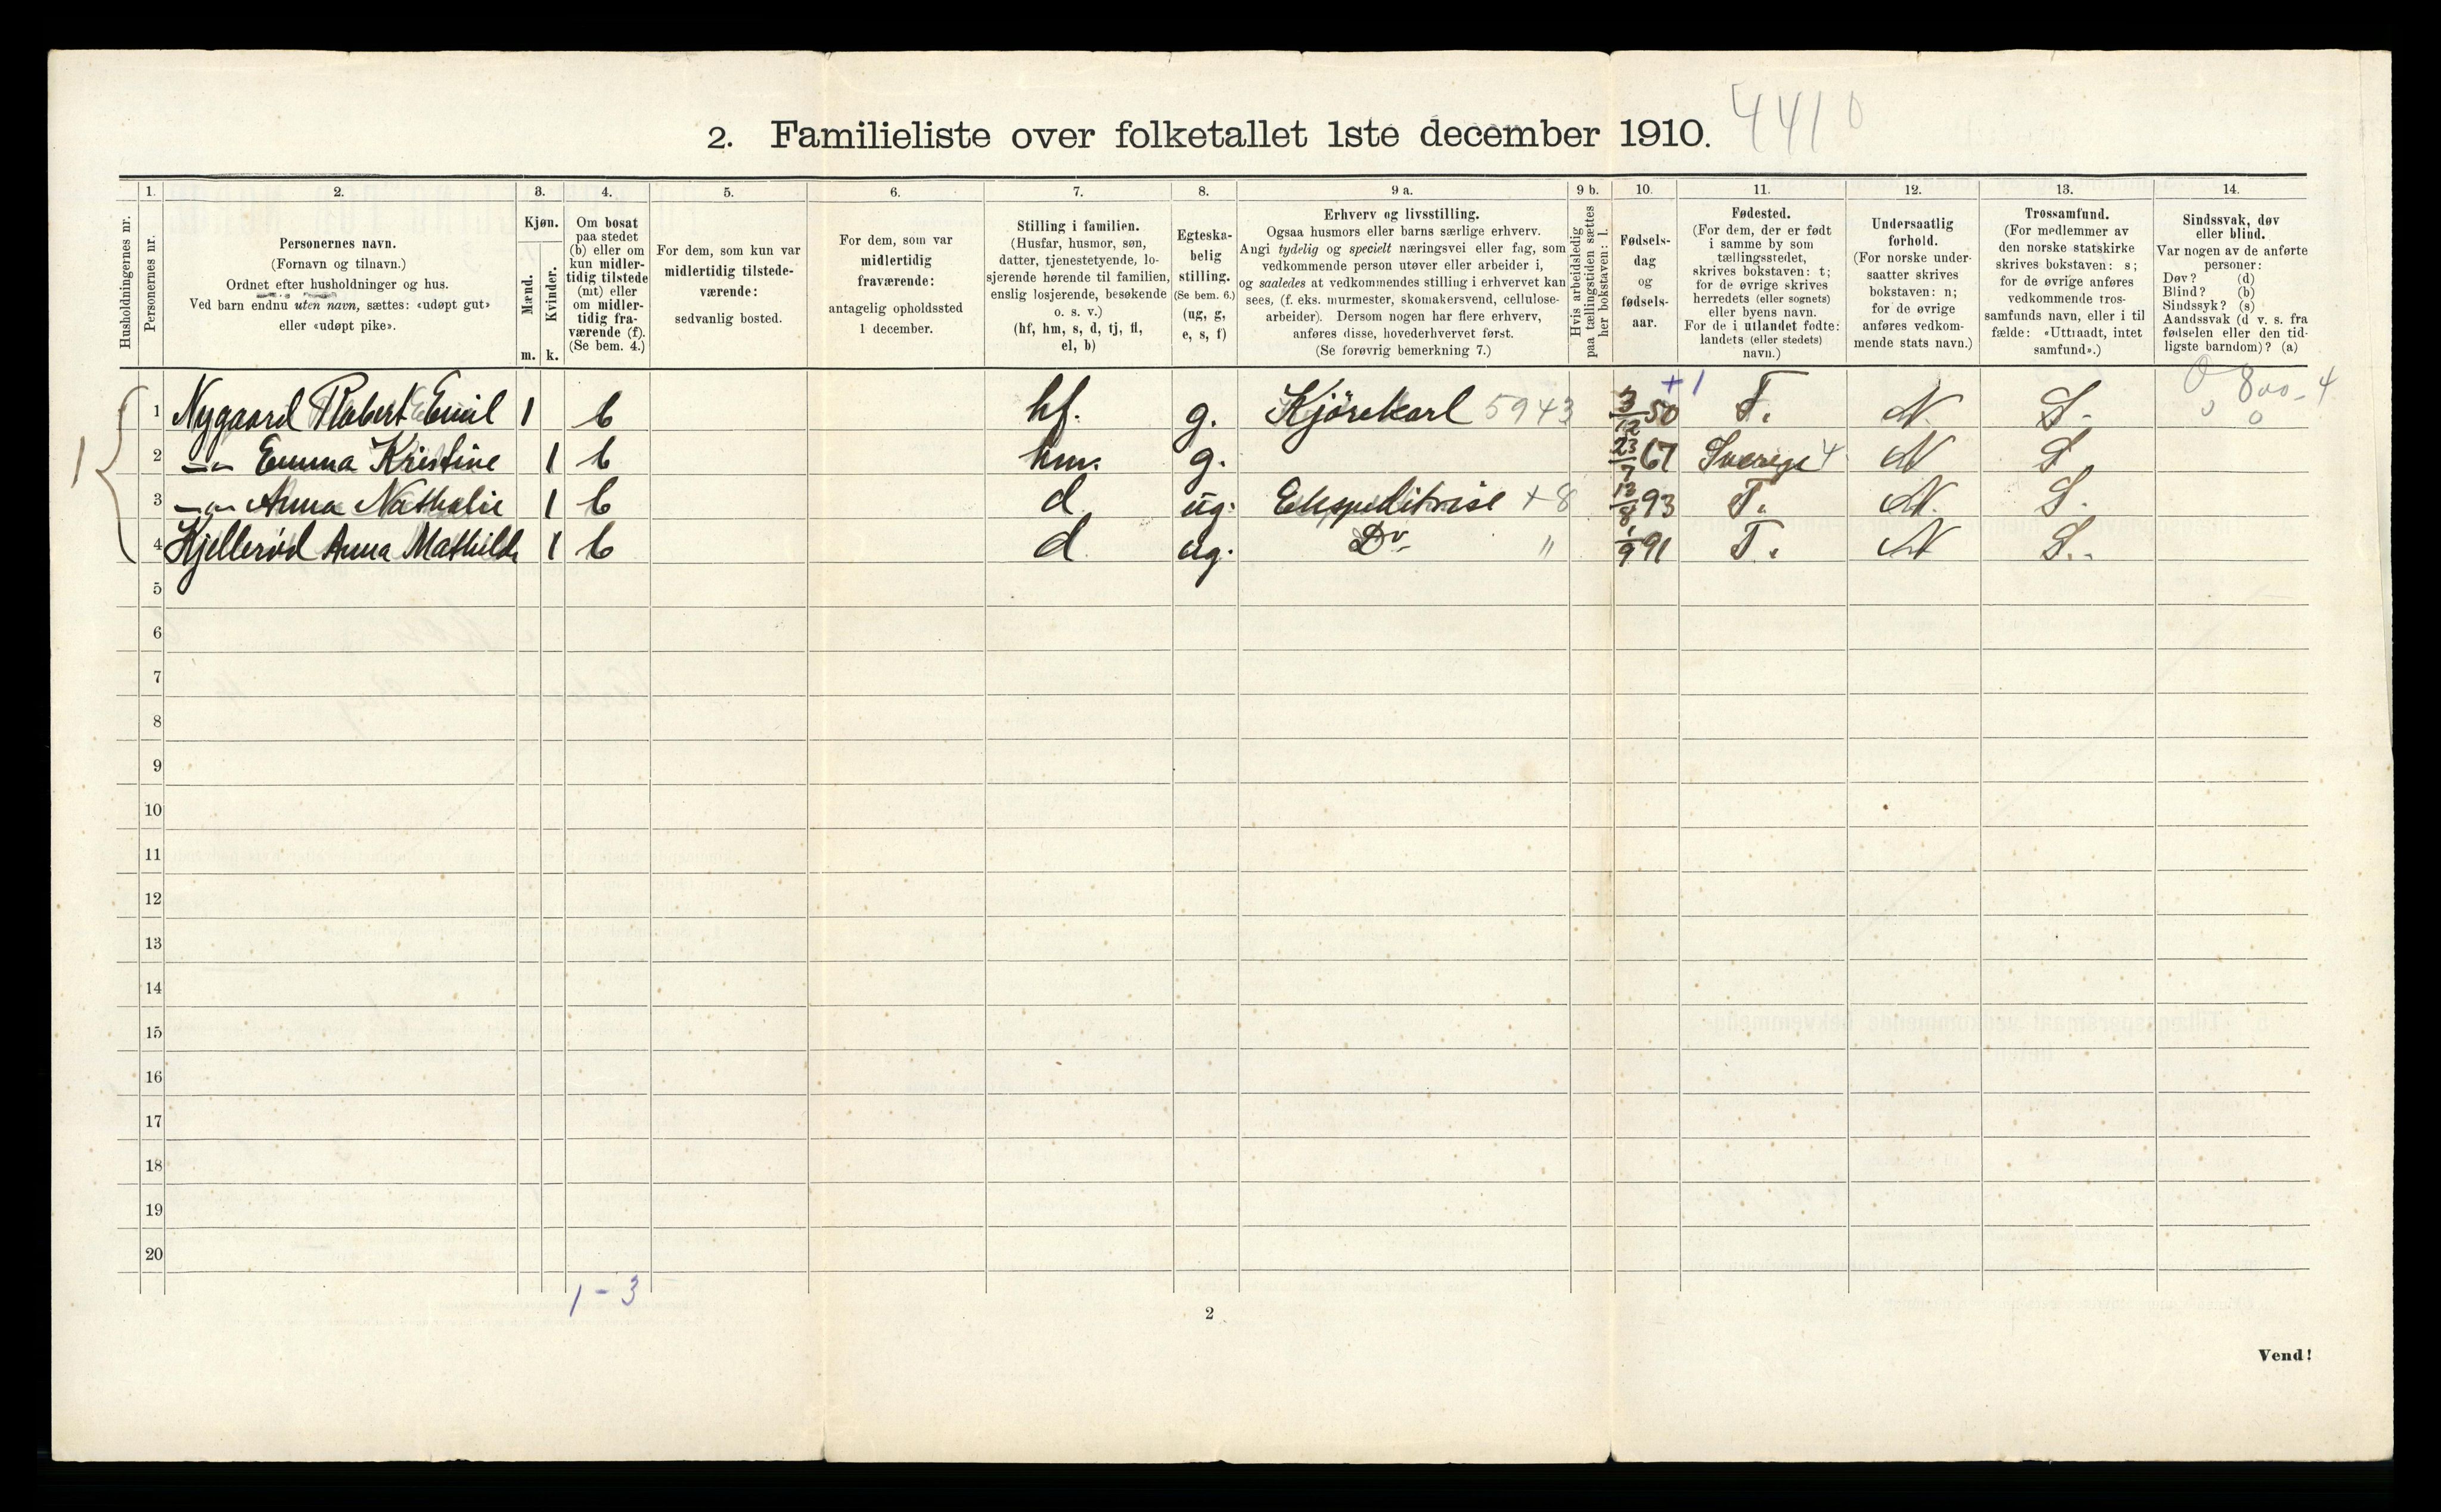 2. Familieliste over folketallet 1ste december 1910. 4410
Husholdningernes nr.
1.
Personernes nr.
2.
Personernes navn.
(Fornavn og tilnavn.)
Ordnet efter husholdninger og hus.
Ved barn endnu uten navn, sættes: «udøpt gut»
eller «udøpt pike».
3.
Kjøn.
Mænd.
m.
Kvinder.
k.
4.
Om bosat
paa stedet
(b) eller om
kun midler-
tidig tilstede
(mt) eller
om midler-
tidig fra-
værende (f).
(Se bem. 4.)
5.
For dem, som kun var
midlertidig tilstede-
værende:
sedvanlig bosted.
6.
For dem, som var
midlertidig
fraværende:
antagelig opholdssted
1 december.
7.
Stilling i familien.
(Husfar, husmor, søn,
datter, tjenestetyende, lo-
sjerende hørende til familien,
enslig losjerende, besøkende
o. s. v.)
(hf, hm, s, d, tj, fl,
el, b)
8.
Egteska-
belig
stilling.
(Se bem. 6.)
(ug, g,
e, s, f)
9 a.
Erhverv og livsstilling.
Ogsaa husmors eller barns særlige erhverv.
Angi tydelig og specielt næringsvei eller fag, som
vedkommende person utøver eller arbeider i,
og saaledes at vedkommendes stilling i erhvervet kan
sees, (f. eks. murmester, skomakersvend, cellulose-
arbeider). Dersom nogen har flere erhverv,
anføres disse, hovederhvervet først.
(Se forøvrig bemerkning 7.)
9 b.
Hvis arbeidsledig
paa tællingstiden sættes
her bokstaven: l.
10.
Fødsels-
dag
og
fødsels-
aar.
11.
Fødested.
(For dem, der er født
i samme by som
tællingsstedet,
skrives bokstaven: t;
for de øvrige skrives
herredets (eller sognets)
eller byens navn.
For de i utlandet fødte:
landets (eller stedets)
navn.)
12.
Undersaatlig
forhold.
(For norske under-
saatter skrives
bokstaven: n;
for de øvrige
anføres vedkom-
mende stats navn.)
13.
Trossamfund.
(For medlemmer av
den norske statskirke
skrives bokstaven: s;
for de øvrige anføres
vedkommende tros-
samfunds navn, eller i til
fælde: «Uttraadt, intet
samfund».)
14.
Sindssvak, døv
eller blind.
Var nogen av de anførte
personer:
Døv? (d)
Blind? (b)
Sindssyk? (s)
Aandssvak (d v. s. fra
fødselen eller den tid-
ligste barndom)? (a)
+1 0 800-4
1 1 Nygaard Robert Emil 1 b hf. g. Kjörekarl 5943 3/12 50 T. N. S. 0 0
2 —„— Emma Kristine 1 b hm. g. 23/7 67 Sverige 4 N S
3 —„— Anna Nathalie 1 b d ug. Ekspeditrise +8 13/8 93 T. N. S.
4 Kjellerød Anna Mathilde 1 b d ug. Do " 1/9 91 T. N S.
5
6
7
8
9
10
11
12
13
14
15
16
17
18
19
20
1-3
2
Vend!